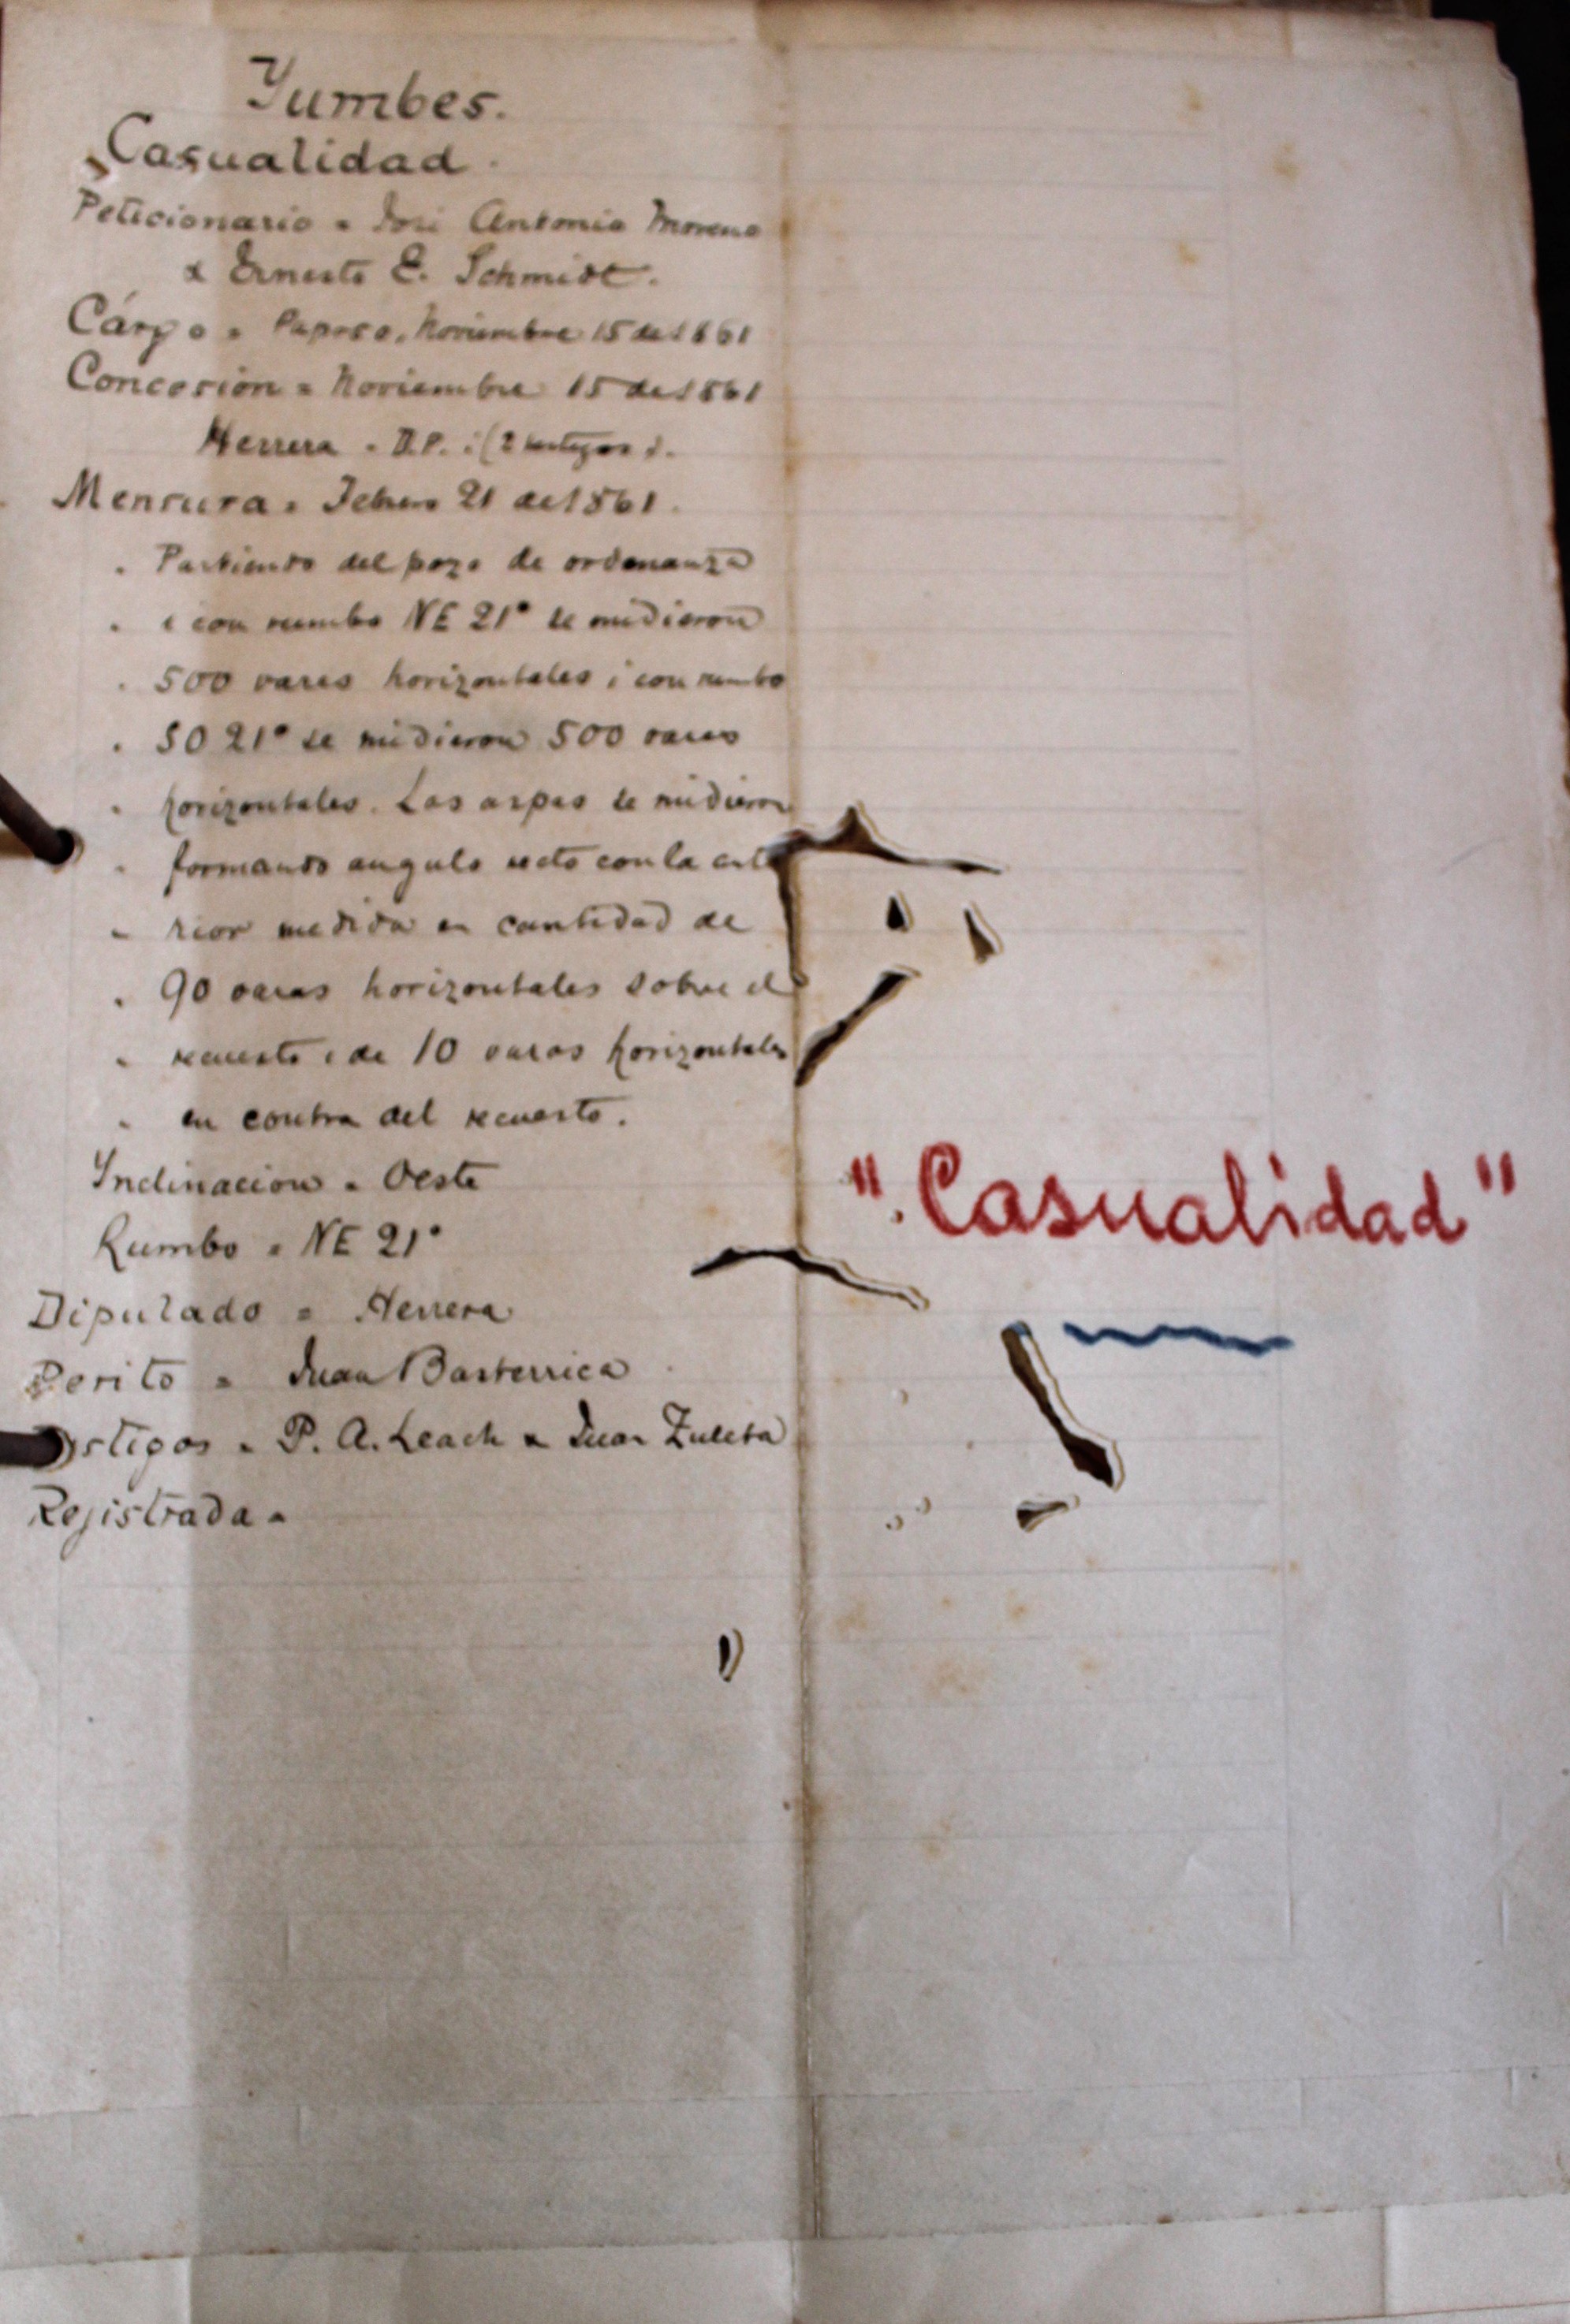 Yumbes.
Casualidad.
Peticionario = José Antonio Moreno
x Ernesto E. Schmidt.
Cárgo = Paposo, Noviembre 15 de 1861
Concesión = Noviembre 15 de 1861
Herrera - D.P. i (2 testigos).
Mensura = Febrero 21 de 1861.
" Partiendo del pozo de ordenanza
" i con rumbo NE 21° se midieron
" 500 varas horizontales i con rumbo
" SO 21° se midieron 500 varas
" horizontales. Las aspas se midieron
" formando angulo recto con la ante
" rior medida en cantidad de
" 90 varas horizontales sobre el
" recuesto i de 10 varas horizontales
" en contra del recuesto.
Ynclinacion = Oeste
Rumbo = NE 21°
Diputado = Herrera
Perito = Juan Basterrica
Testigos = P. A. Leach x Juan Zuleta
Rejistrada =
"Casualidad"